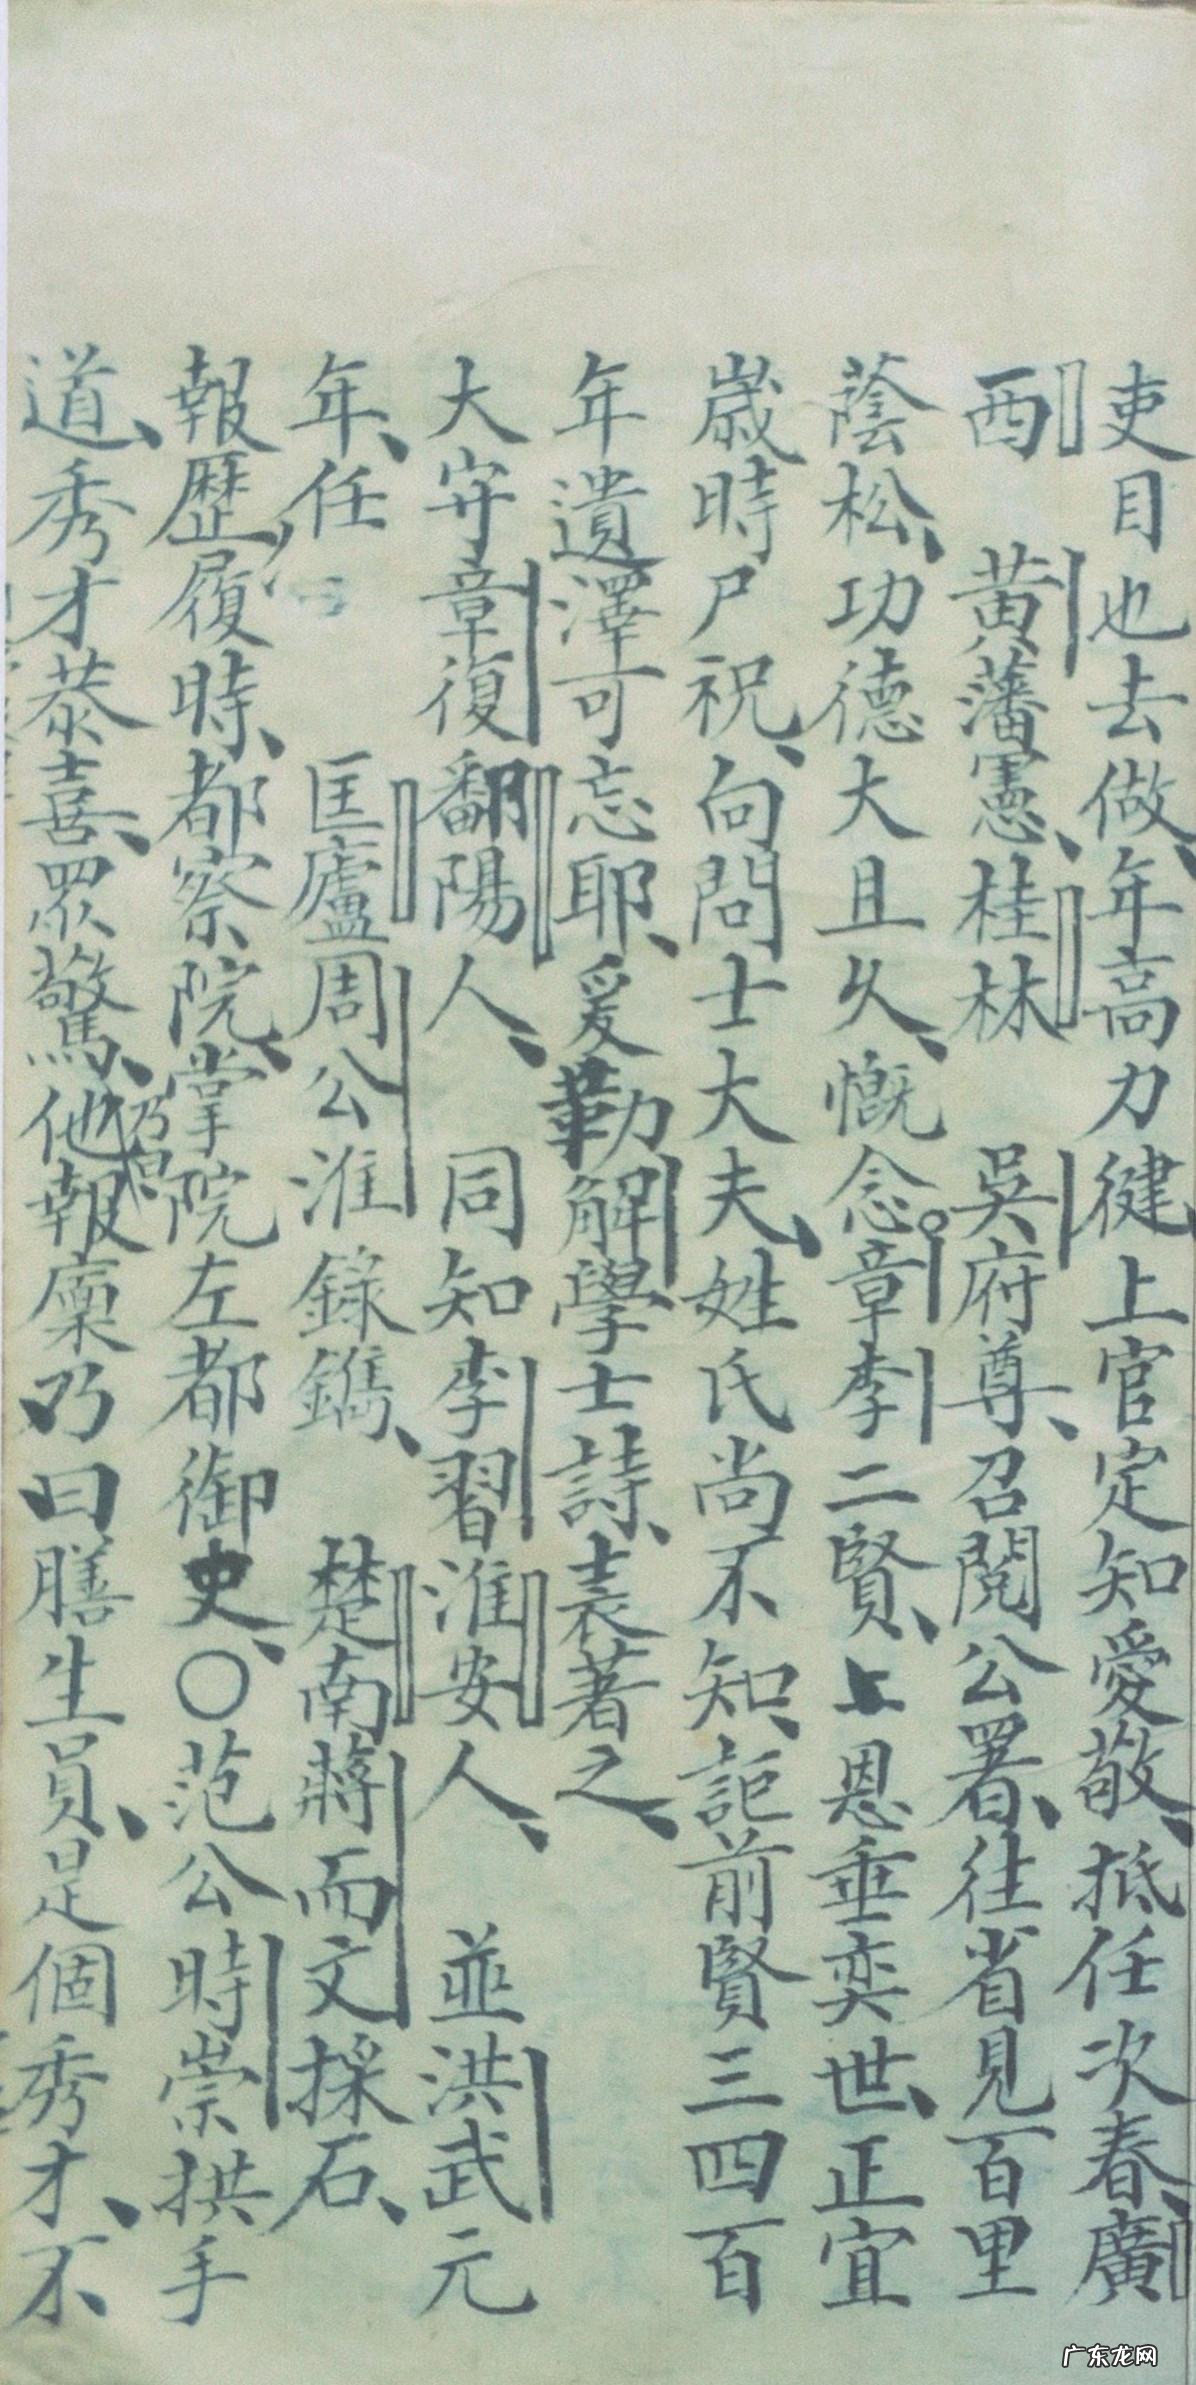 吏目也去做、年高力健上官定知愛敬、抵任次春、廣
西　黃藩憲、桂林　吳府尊、召閱公署、往省見百里
蔭松、功德大且久、慨念。章李二賢、上恩垂奕世、正宜
歲時尸祝、向問士大夫、姓氏尚不知、詎前賢三四百
年遺澤可忘耶、爰勒解學士詩、表著之、
大守章復鄱陽人、　同知李習淮安人、　並洪武元
年、任　匡廬周公淮錄鐫、　楚南蔣而文採石、
報歷履時、都察院、掌院左都御史、〇范公時崇拱手
道、秀才恭喜、眾驚、他報廩乃曰膳生員、是個秀才、不
乃曰
广东龙网